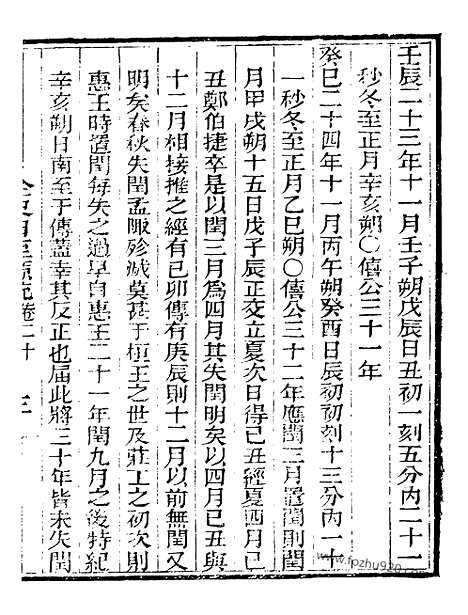 壬辰二十三年十一月壬子朔戊辰日丑初一刻五分內二十一
秒冬至正月辛亥朔〇僖公三十一年
癸巳二十四年十一月丙午朔癸酉日辰初初刻十三分內一十
一秒冬至正月乙巳朔〇僖公三十二年應閏三月置閏則閏
月甲戌朔十五日戊子辰正交立夏次日得己丑經夏四月己
丑鄭伯捷卒是以閏三月為四月其失閏明矣以四月己丑與
十二月相接推之經有己卯傳有庚辰則十二月以前無閏又
明矣春秋失閏孟陬殄滅莫甚于桓王之世及莊王之初次則
惠王時置閏每失之過早自惠王二十一年閏九月之後特紀
辛亥朔日南至于傳蓋幸其反正也屆此將三十年皆未失閏
卷二十
www.fozhu920.com